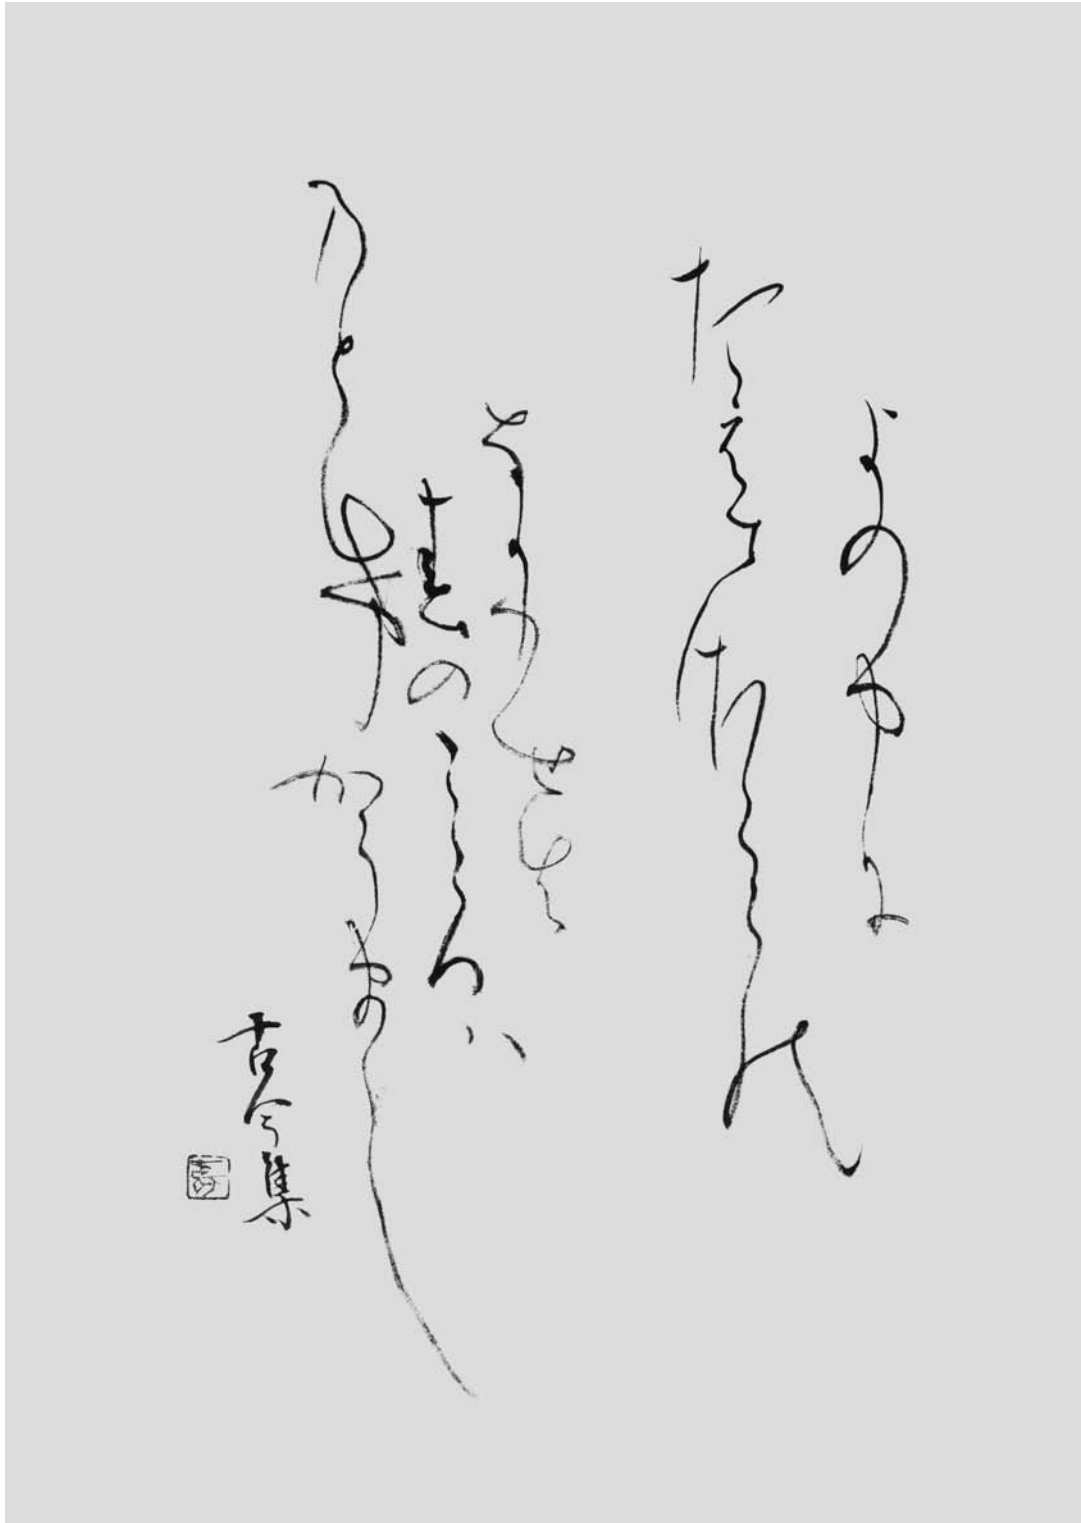 よの中に
たえてさくらの
なかりせは
春のこころハ
のとけからまし
古今集